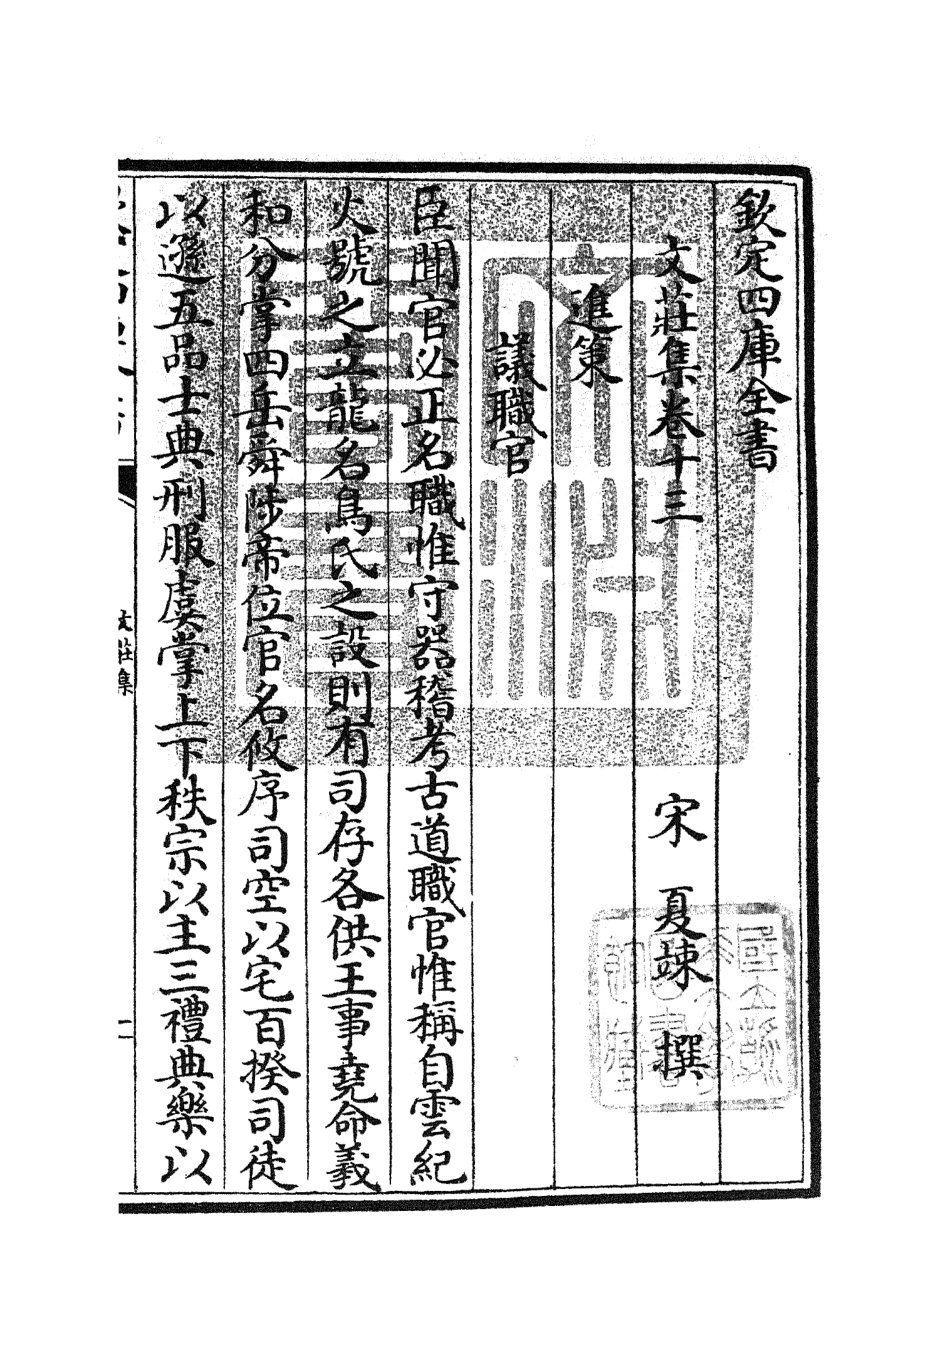 欽定四庫全書
文莊集卷十三
宋 夏竦 撰
進策
議職官
臣聞官必正名職惟守器稽考古道職官惟稱自雲紀
火號之立龍名鳥氏之設則有司存各供王事堯命羲
和分掌四岳舜陟帝位官名攸序司空以宅百揆司徒
以遜五品士典刑服虞掌上下秩宗以主三禮典樂以
文莊集